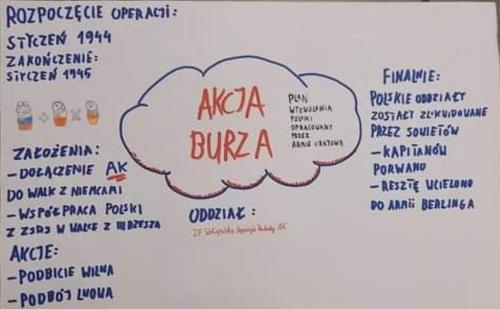 ROZPOCZĘCIE OPERACJI:
STYCZEŃ 1944
ZAKOŃCZENIE:
STYCZEŃ 1945
ZAŁOŻENIA:
- DOŁĄCZENIE AK
DO WALKI Z NIEMCAMI
- WSPÓŁPRACA POLSKI
Z ZSRS W WALCE Z III RZESZĄ
AKCJE:
- PODBICIE WILNA
- PODBÓJ LWOWA
AKCJA
BURZA
PLAN
WYZWOLENIA
POLSKI
OPRACOWANY
PRZEZ
ARMIĘ KRAJOWĄ
ODDZIAŁ:
27 Wołyńska Dywizja Piechoty AK
FINALNIE:
POLSKIE ODDZIAŁY
ZOSTAŁY ZLIKWIDOWANE
PRZEZ SOWIETÓW
- KAPITANÓW
PORWANO
- RESZTĘ WCIELONO
DO ARMII BERLINGA